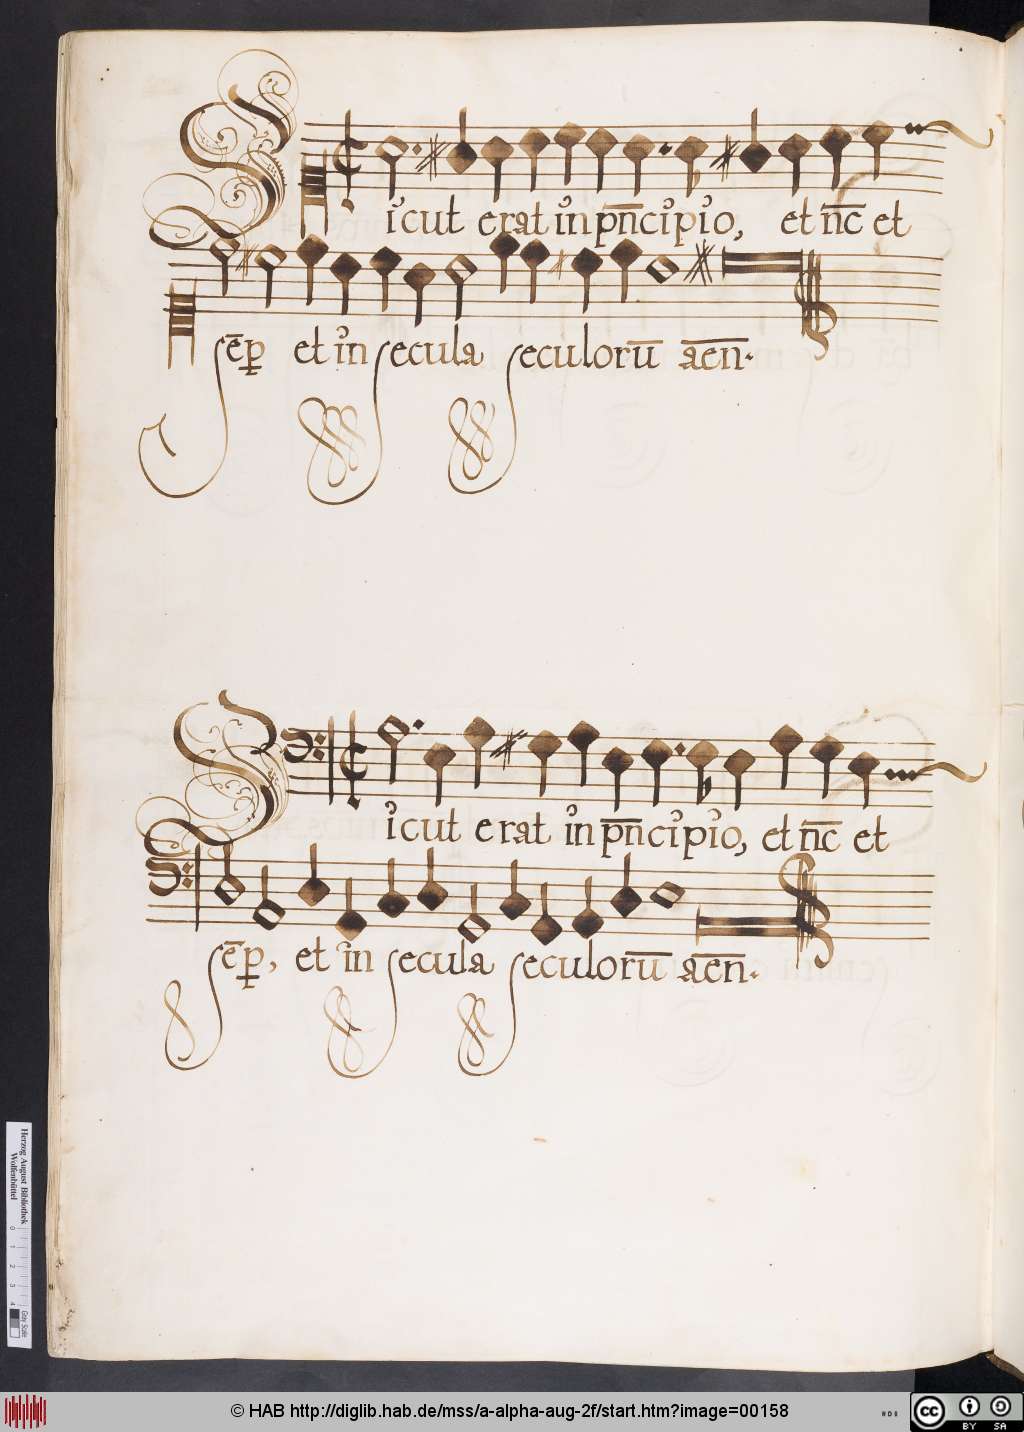 Sicut erat in pn̄cipio, et nc̄ et
sēp̱ et in secula seculorū aen̄.
Sicut erat in pn̄cipio, et nc̄ et
sēp̱, et in secula seculorū aen̄.
Herzog August Bibliothek
Wolfenbüttel
0 1 2 3 4
Gray Scale
© HAB http://diglib.hab.de/mss/a-alpha-aug-2f/start.htm?image=00158
cc BY SA